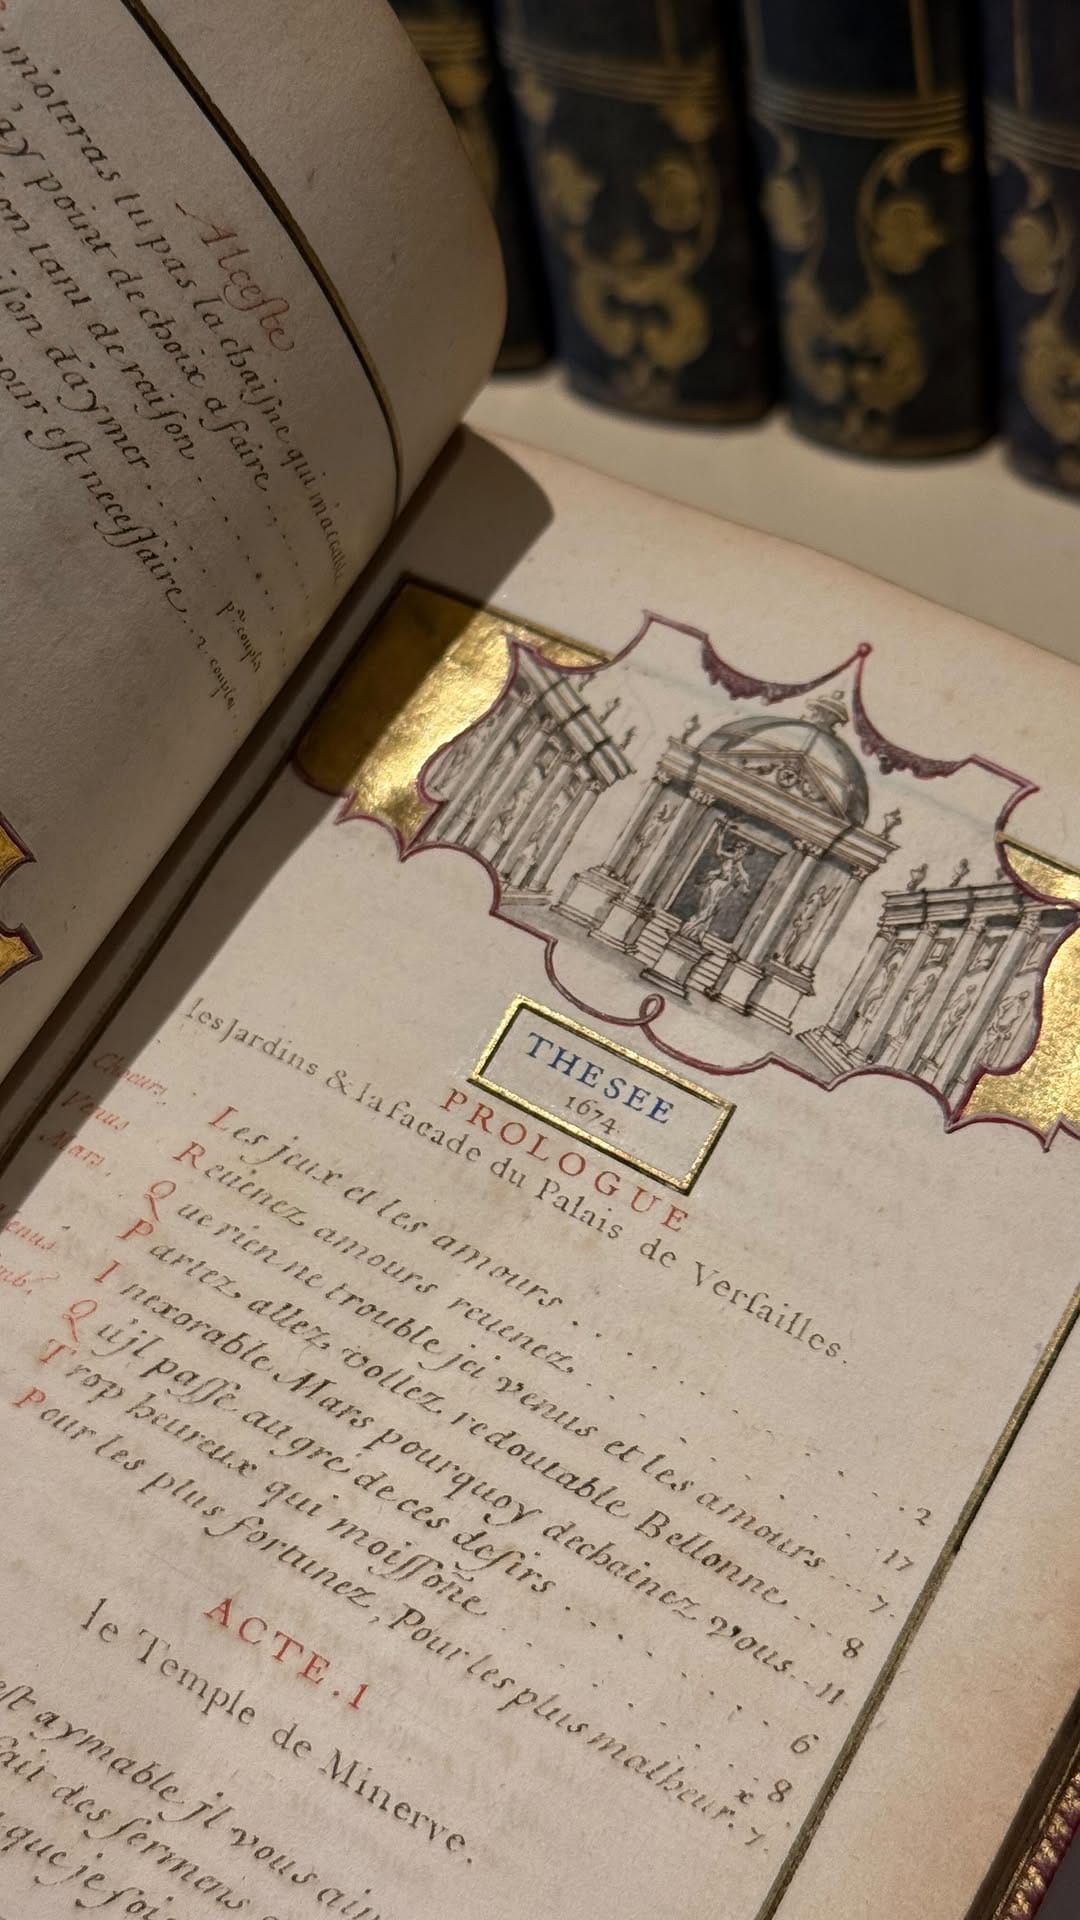 Alceste
m'oteras tu pas la chaisne qui m'accable
'ay point de choix a faire
on tant de raison
ison d'aymer . . . pr. couplet
our est necessaire . . 2. couplet
THESEE
1674.
PROLOGUE
les Jardins & la facade du Palais de Versailles.
Choeurs. Les jeux et les amours . . . . . . 2
Venus Reuenez amours reuenez . . . . . . 17
Mars. Que rien ne trouble jci venus et les amours . . . 7.
Partez allez vollez redoutable Bellonne . . . 8
Venus Inexorable Mars pourquoy dechainez vous . . 11.
Qu'jl passe au gre de ces desirs . . . . . 6
Trop heureux qui moissoñe . . . . . 8
Pour les plus fortunez, Pour les plus malheur.x 7.
ACTE.1
le Temple de Minerve.
est aymable jl vous aim
fait des sermens
que je soi